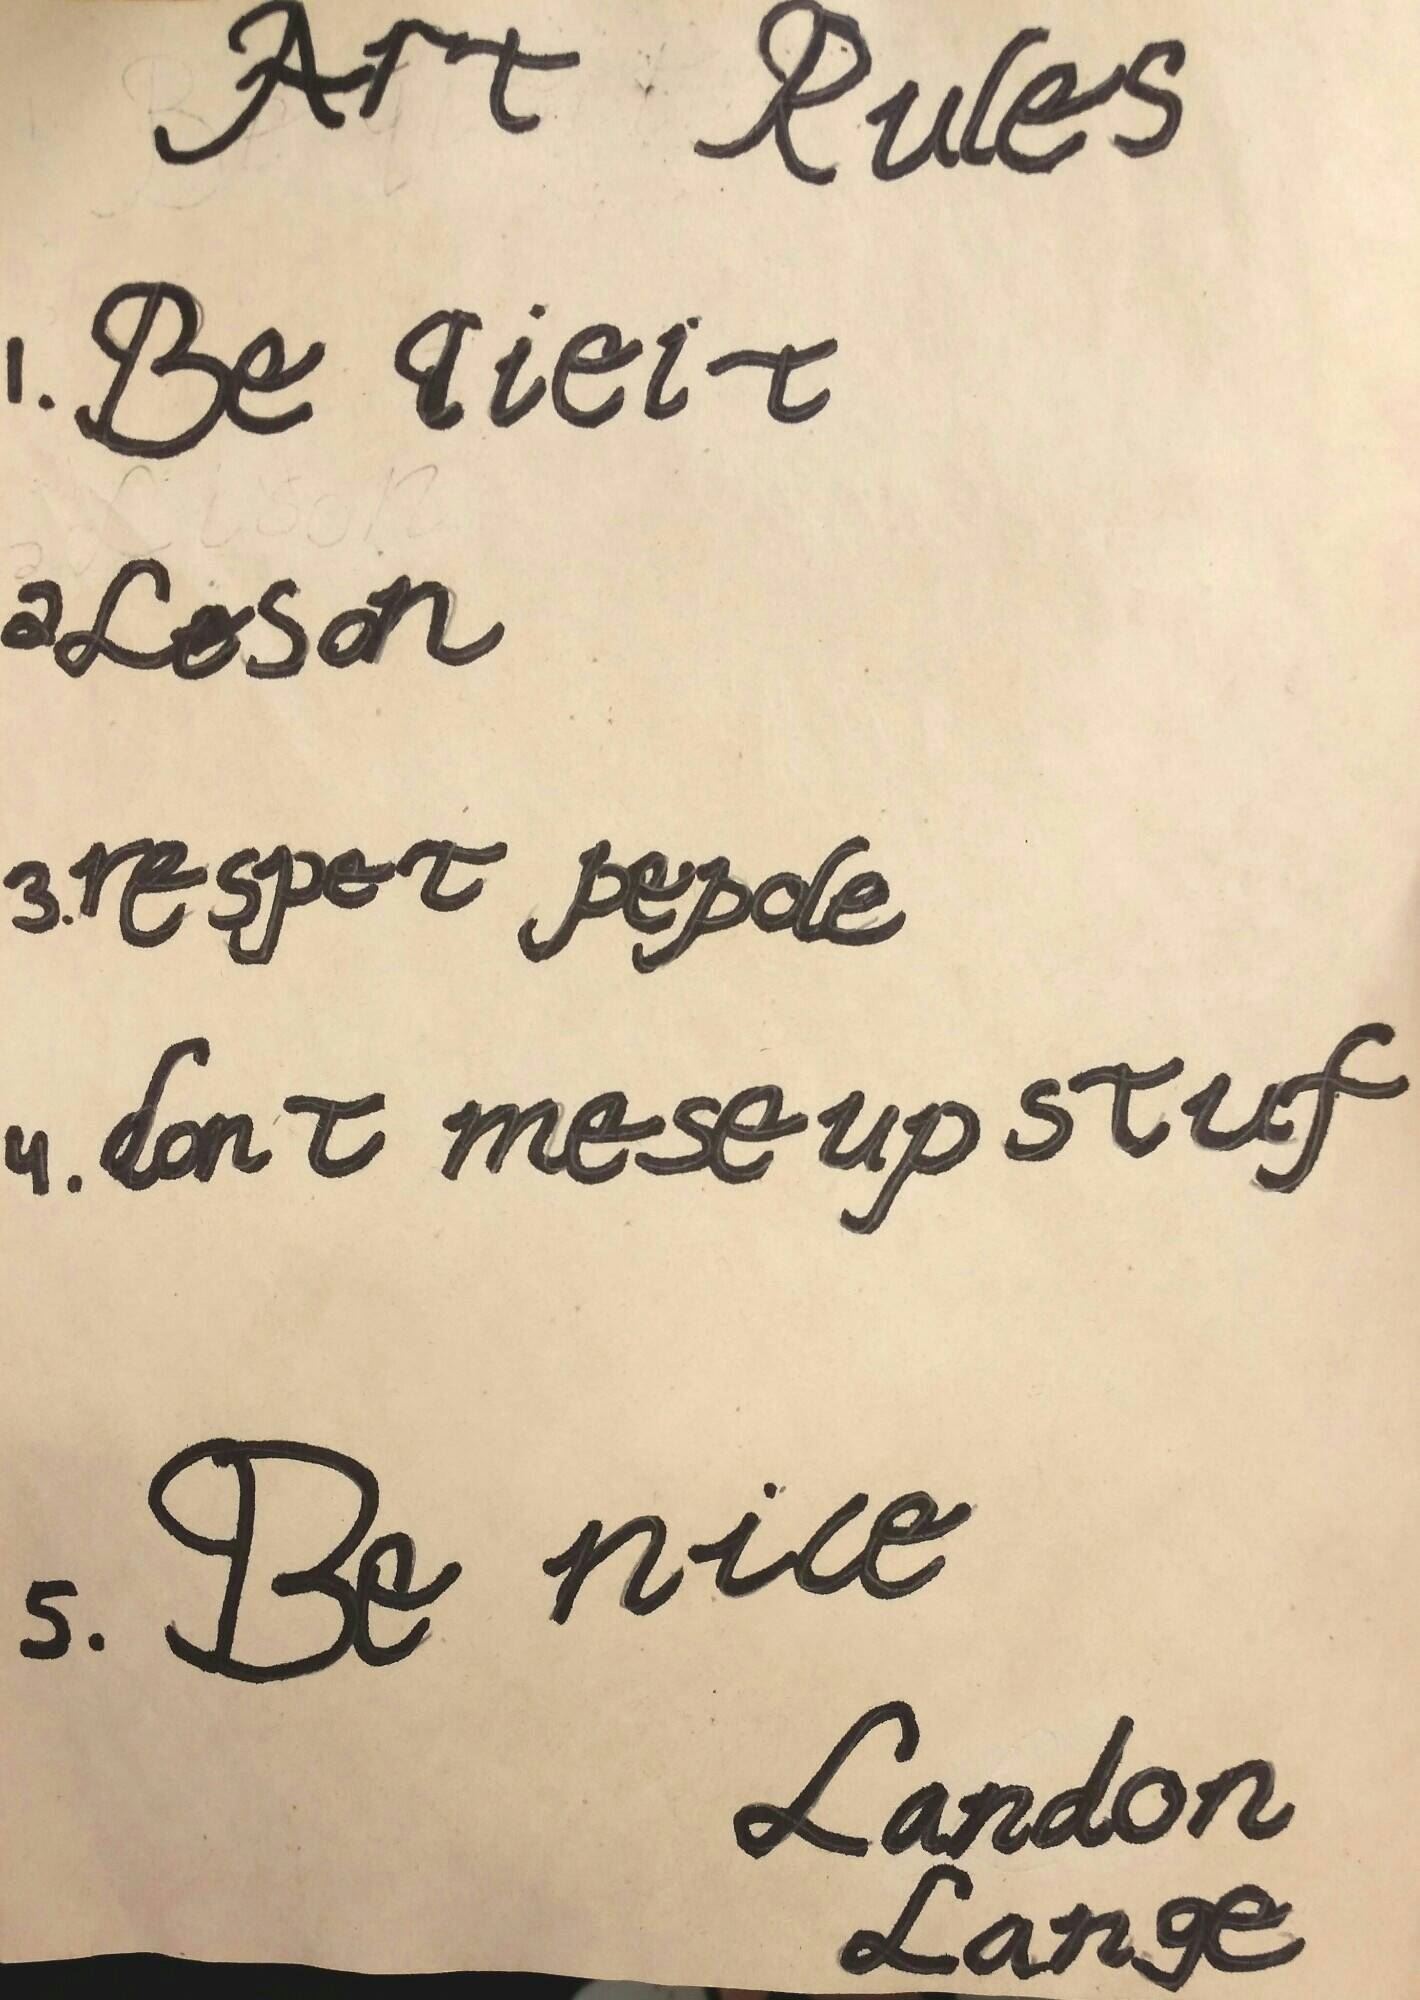 Art Rules
1. Be qieit
2 Leson
3. respet pepole
4. dont mese up stuf
5. Be nice
Landon
Lange